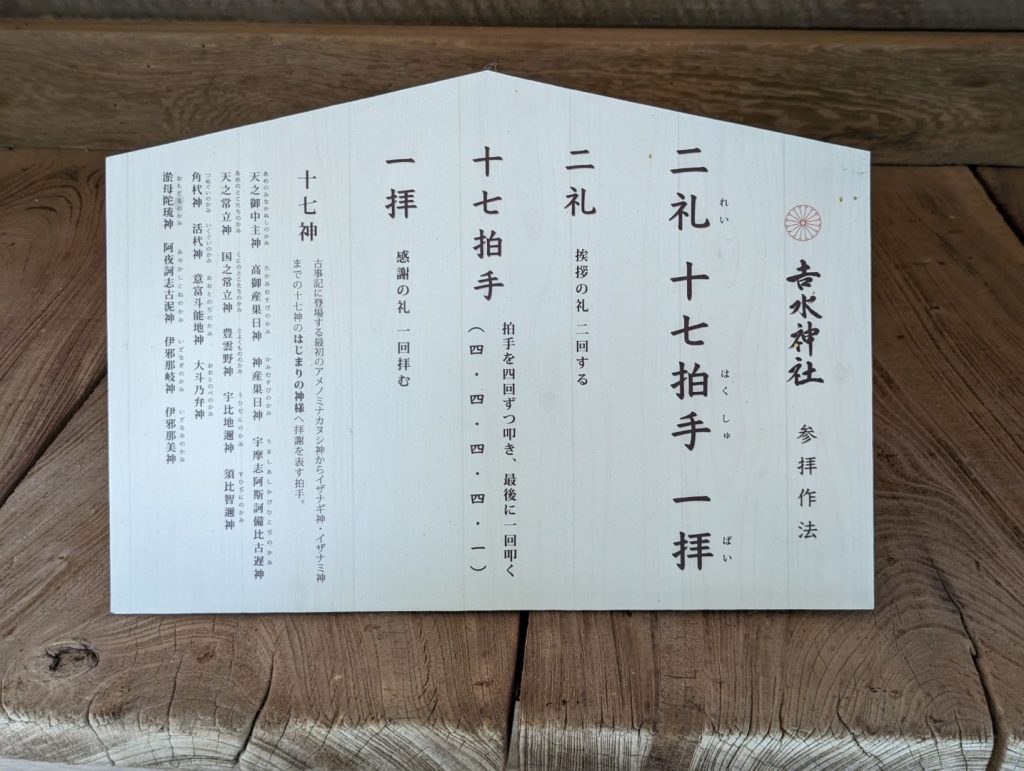 𠮷水神社 参拝作法
二礼 十七拍手 一拝
れい はくしゅ ぱい
二礼 挨拶の礼 二回する
十七拍手 拍手を四回ずつ叩き、最後に一回叩く
(四・四・四・四・一)
一拝 感謝の礼 一回拝む
十七神 古事記に登場する最初のアメノミナカヌシ神からイザナギ神・イザナミ神
までの十七神のはじまりの神様へ拝謝を表す拍手。
あめのみなかぬしのかみ たかみむすびのかみ かみむすびのかみ うましあしかびひこぢのかみ
天之御中主神 高御産巣日神 神産巣日神 宇摩志阿斯訶備比古遅神
あめのとこたちのかみ くにのとこたちのかみ とよくもののかみ うひぢにのかみ すひぢにのかみ
天之常立神 国之常立神 豊雲野神 宇比地邇神 須比智邇神
つぬぐいのかみ いくぐいのかみ おおとのぢのかみ おおとのべのかみ
角杙神 活杙神 意富斗能地神 大斗乃弁神
おもだるのかみ あやかしこねのかみ いざなぎのかみ いざなみのかみ
淤母陀琉神 阿夜訶志古泥神 伊邪那岐神 伊邪那美神